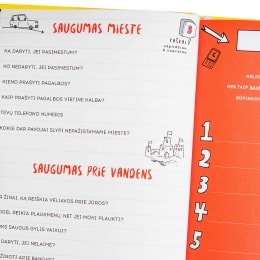 SAUGUMAS MIESTE
3
TAŠKAI
KĄ DARYTI, JEI PASIMESTUM?
KO NEDARYTI, JEI PASIMESTUM?
KIENO PRAŠYTI PAGALBOS?
KAIP PRAŠYTI PAGALBOS VIETINE KALBA?
TĖVŲ TELEFONO NUMERIS
KOKIE DAR PAVOJAI SLYPI NEPAŽĮSTAMAME MIESTE?
SAUGUMAS PRIE VANDENS
ŽINAI, KĄ REIŠKIA VĖLIAVOS PRIE JŪROS?
REIKIA PLAUKMENŲ, NET JEI MOKI PLAUKTI?
SAUGUS GYLIS VAIKUI?
DARYTI, JEI NELAIMĖ?
1
2
3
4
5